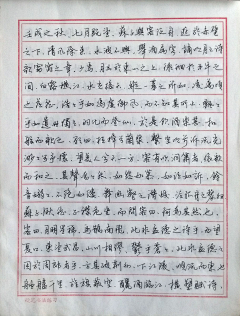 壬戌之秋，七月既望，苏子与客泛舟，遊於赤壁
之下。清风徐来，水波不兴。举酒属客，诵明月之诗，
歌窈窕之章。少焉，月出於東山之上，徘徊於斗牛之
间。白露横江，水光接天。纵一葦之所如，凌萬顷
之茫然。浩浩乎如馮虚御风，而不知其所止；飘飘
乎如遗世獨立，羽化而登仙。於是飲酒樂甚，扣
舷而歌之。歌曰：桂棹兮蘭桨，擊空明兮泝流光。
渺渺兮予懷，望美人兮天一方。客有吹洞簫者，倚歌
而和之。其聲嗚嗚然，如怨如慕，如泣如訴，餘
音嫋嫋，不绝如縷。舞幽壑之潛蛟，泣孤舟之嫠婦。
蘇子愀然，正襟危坐，而問客曰：何為其然也？
客曰：月明星稀，烏鹊南飛，此非曹孟德之诗乎？西望
夏口，東望武昌，山川相繆，鬱乎蒼蒼，此非孟德之
困於周郎者乎？方其破荆州，下江陵，順流而東也，
舳艫千里，旌旗蔽空，釃酒臨江，横槊賦诗，